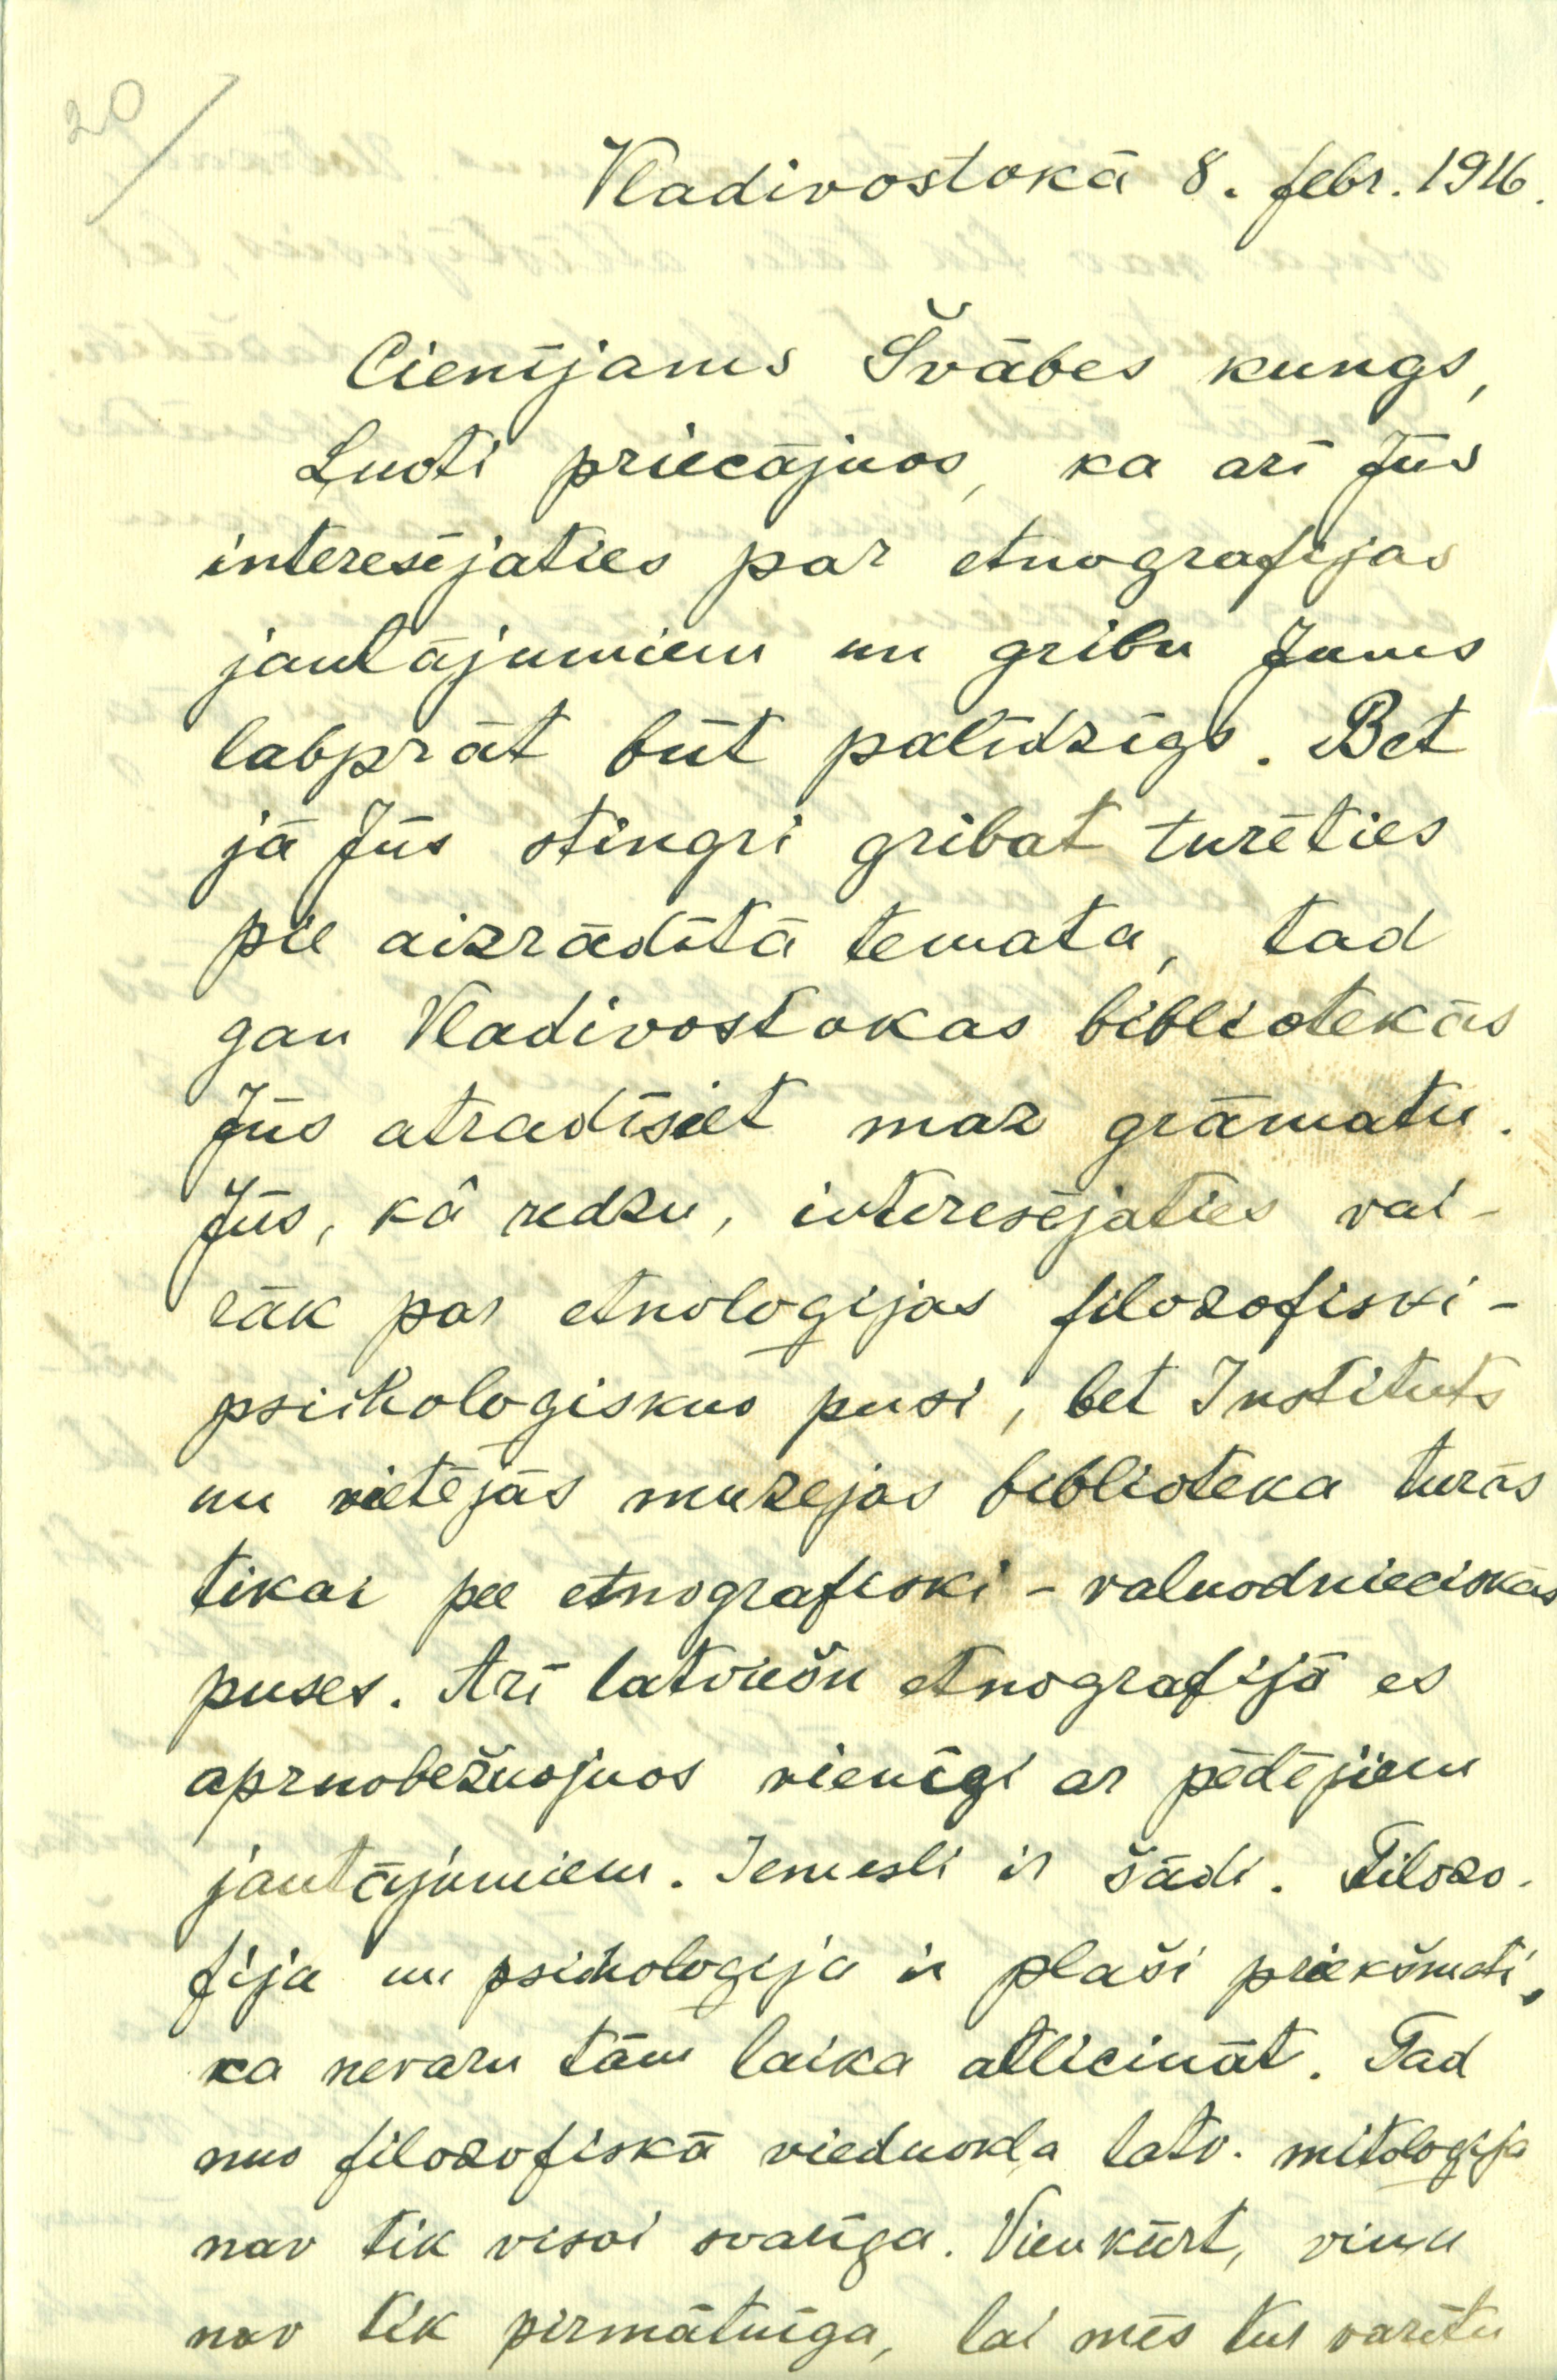 20
Vladivostokā 8. febr. 1916.
Cienījams Švābes kungs,
Ļuoti priecājuos, ka arī Jūs
interesējaties par etnografijas
jautājumiem un gribu Jums
labprāt būt palīdzīgs. Bet
jā Jūs stingri gribat turēties
pie aizrādītā temata, tad
gan Vladivostokas bibliotekās
Jūs atradīsiet maz grāmatu.
Jūs, kâ redzu, interesējaties vai-
rāk par etnoloģijas filozofiski-
psiholoģiskuo pusi, bet Instituts
un vietējās muzejas biblioteka turās
tikai pie etnografiski-valuodnieciskās
puses. Arī latviešu etnografijā es
apruobežuojuos vienīgi ar pēdējiem
jautājumiem. Iemesli ir šādi. Filozo-
fija un psiholoģija ir plaši priekšmeti,
ka nevaru tām laika atlicināt. Tad
nuo filozofiskā vieduokļa latv. mitoloģija
nav tik visai svarīga. Vienkārt, viņa
nav tik pirmātnīga, lai mēs tur varētu